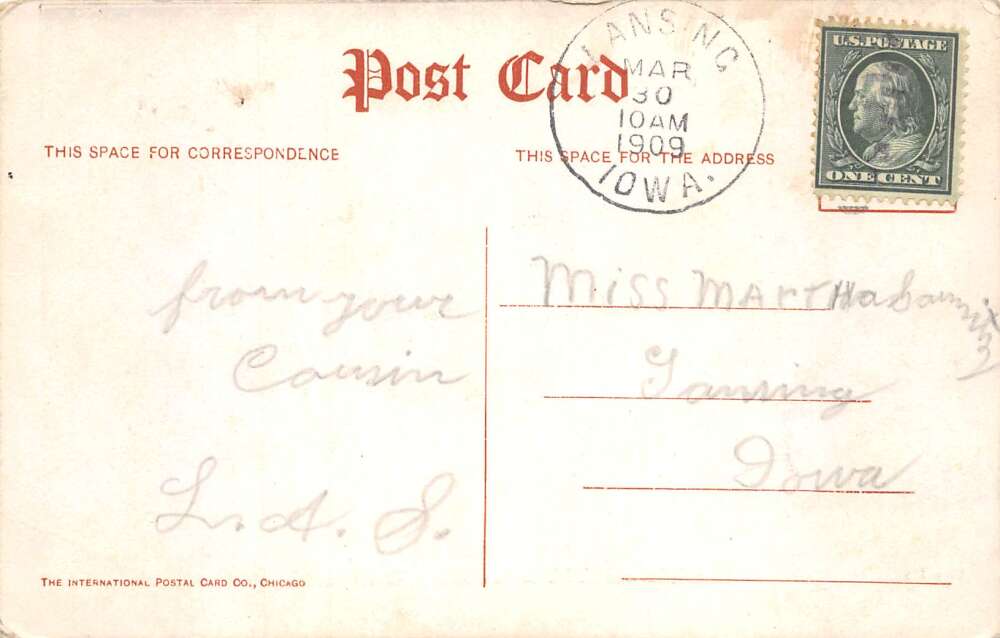 Post Card
LANSING
MAR
30
10AM
1909
IOWA.
U.S. POSTAGE
ONE CENT
THIS SPACE FOR CORRESPONDENCE
THIS SPACE FOR THE ADDRESS
from your
Cousin
L. A. S.
Miss MARTHA
Lansing
Iowa
THE INTERNATIONAL POSTAL CARD CO., CHICAGO